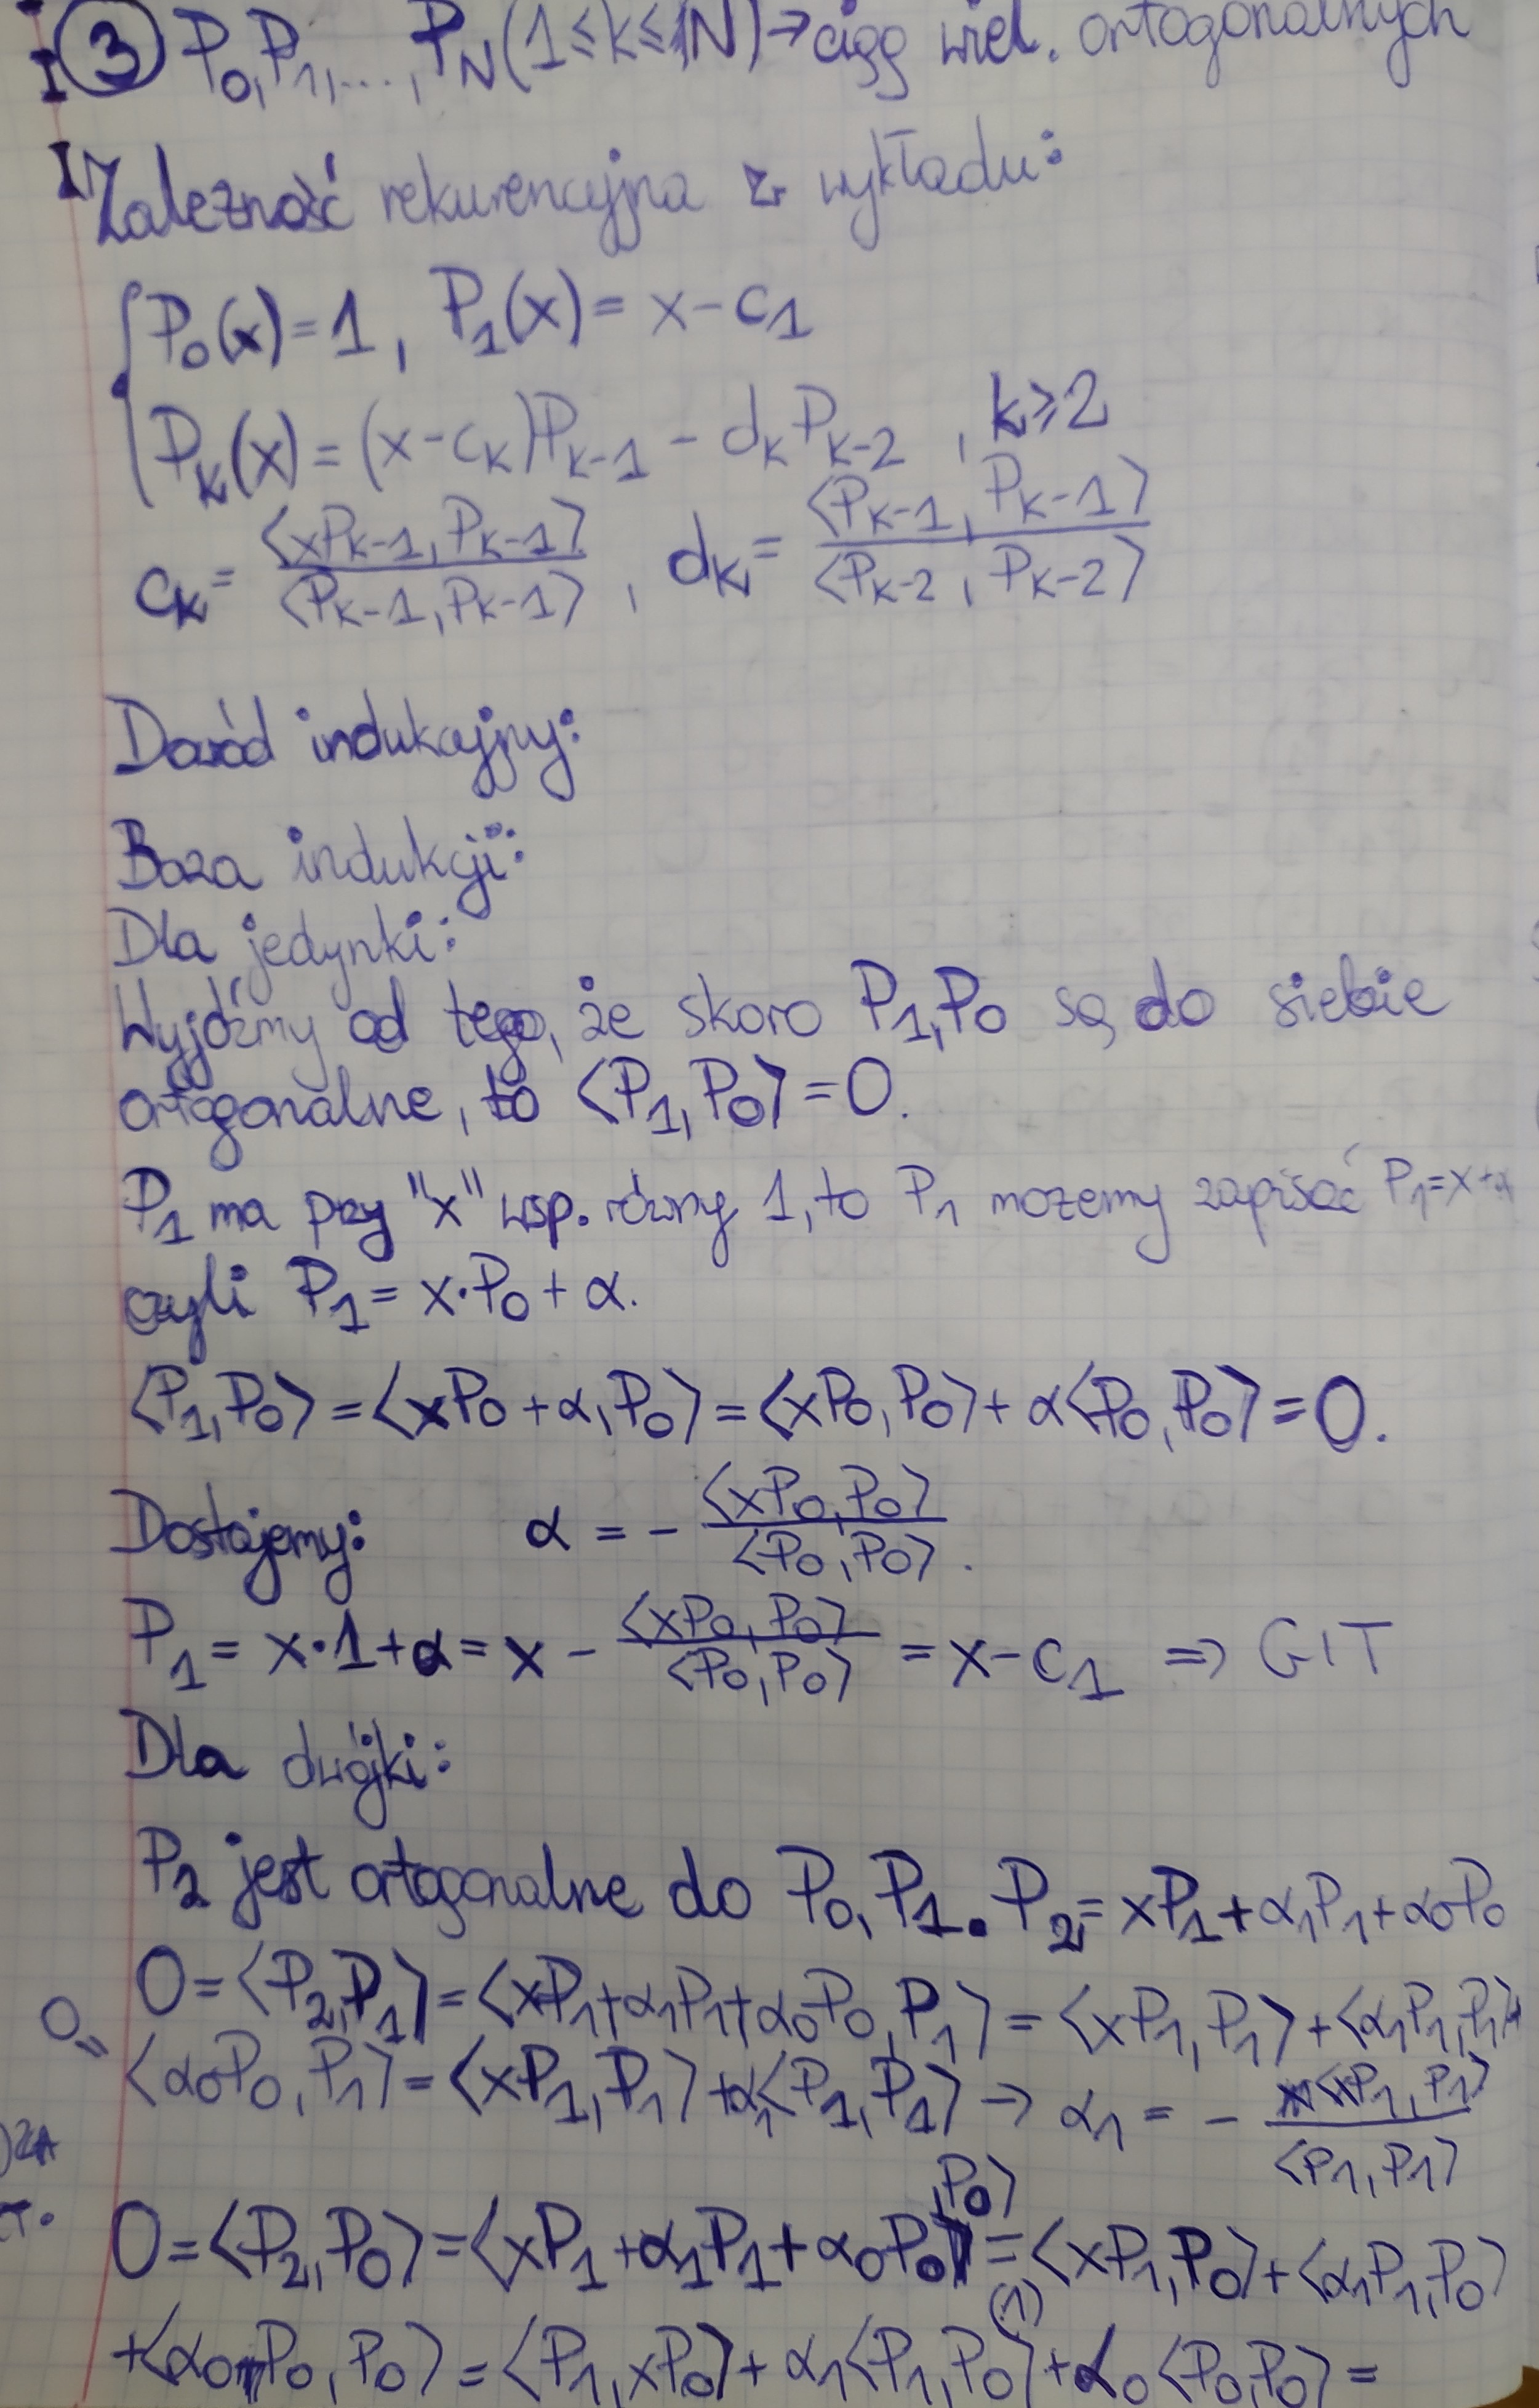 3 P₀,P₁,...,P_N (1≤k≤N)→ciąg wiel. ortogonalnych
Zależność rekurencyjna z wykładu:
P₀(x)=1, P₁(x)= x-c₁
P_k(x)=(x-c_k)P_{k-1} - d_k P_{k-2}, k≥2
c_k= <xP_{k-1},P_{k-1}> / <P_{k-1},P_{k-1}>, d_k= <P_{k-1},P_{k-1}> / <P_{k-2},P_{k-2}>
Dowód indukcyjny:
Baza indukcji:
Dla jedynki:
Wyjdźmy od tego, że skoro P₁,P₀ są do siebie
ortogonalne, to <P₁,P₀>=0.
P₁ ma przy "x" wsp. równy 1, to P₁ możemy zapisać P₁=x+α
czyli P₁= x·P₀+α.
<P₁,P₀>=<xP₀+α,P₀>=<xP₀,P₀>+α<P₀,P₀>=0.
Dostajemy: α = - <xP₀,P₀> / <P₀,P₀>.
P₁= x·1+α= x - <xP₀,P₀> / <P₀,P₀> = x-c₁ => GIT
Dla dwójki:
P₂ jest ortogonalne do P₀,P₁. P₂= xP₁+α₁P₁+α₀P₀
0=<P₂,P₁>=<xP₁+α₁P₁+α₀P₀,P₁>=<xP₁,P₁>+<α₁P₁,P₁>+
0= <α₀P₀,P₁>=<xP₁,P₁>+α₁<P₁,P₁>→ α₁= - <xP₁,P₁> / <P₁,P₁>
0=<P₂,P₀>=<xP₁+α₁P₁+α₀P₀,P₀>=<xP₁,P₀>+<α₁P₁,P₀>
(1)
+<α₀P₀,P₀>=<P₁,xP₀>+α₁<P₁,P₀>+α₀<P₀,P₀>=